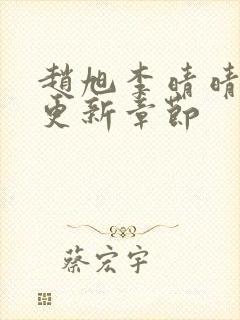 趙旭李晴晴
更新章節
蔡宏宇